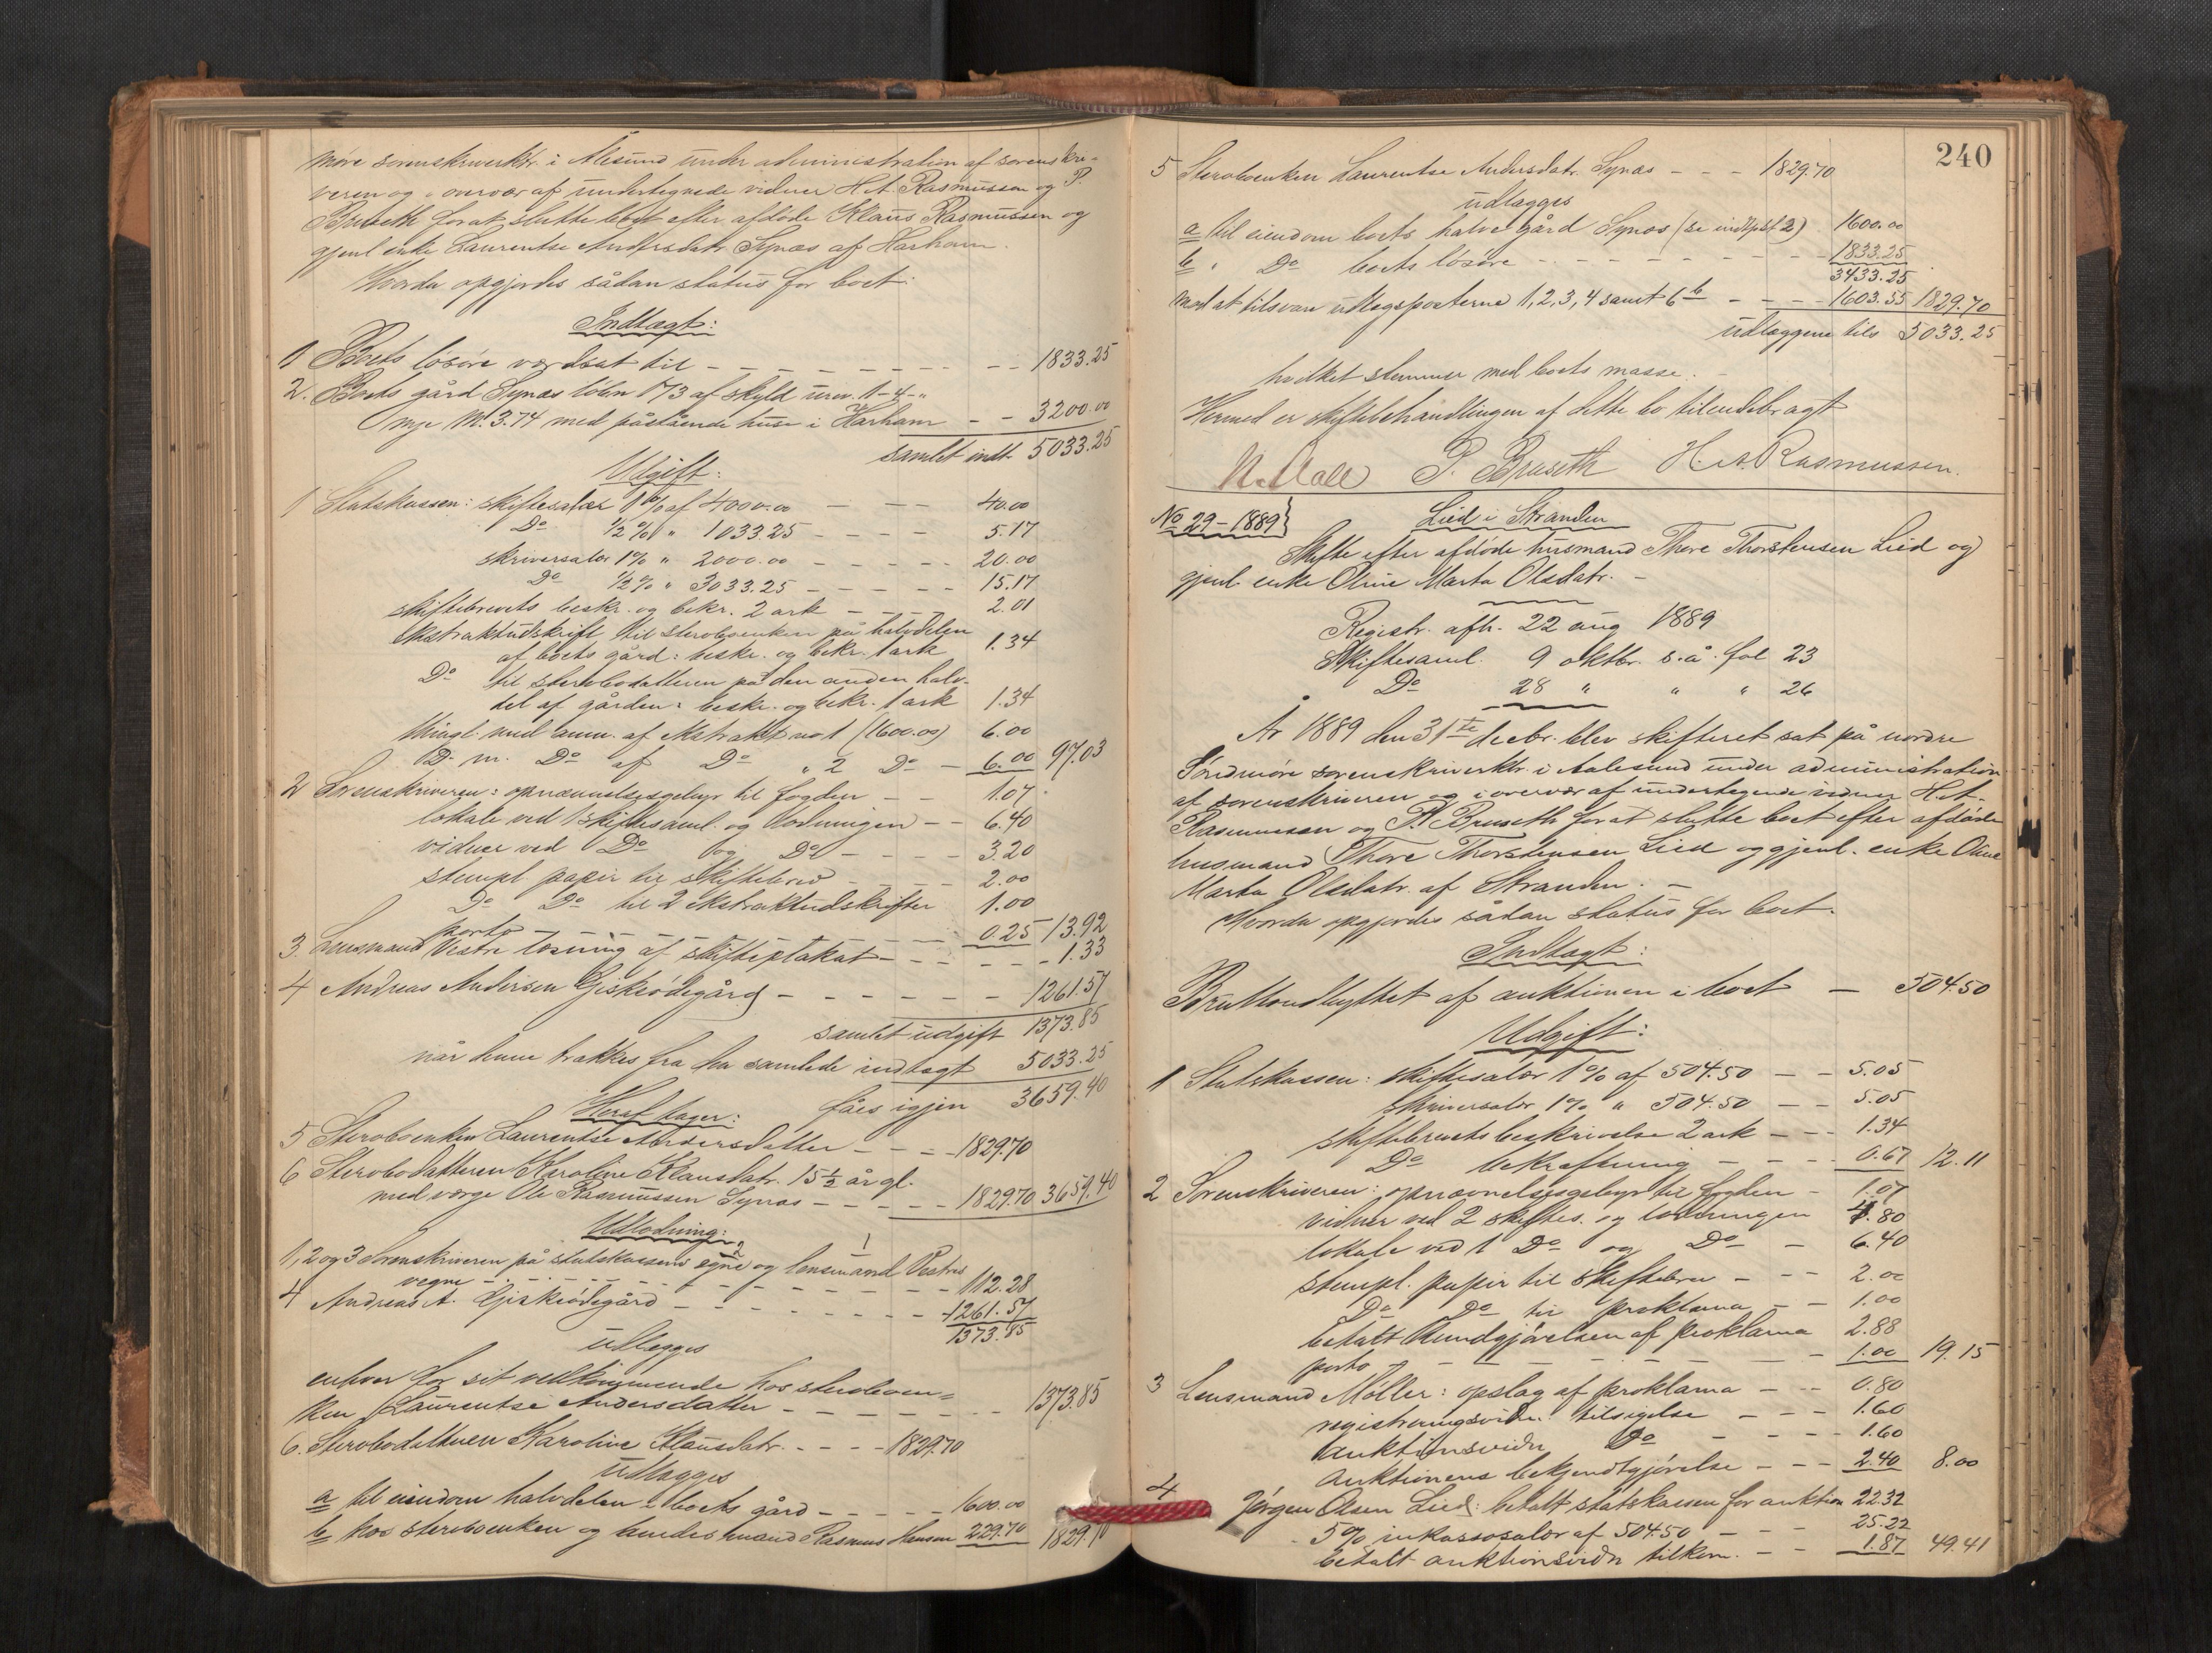 møre sorenskriverktr. i Ålesund under administration af sorenskri-
veren og i overvær af undertegnede vidner H. A. Rasmussen og P.
Bruseth forat slutte boet efter afdøde Klaus Rasmussen og
gjenl enke Laurentse Andersdatr. Synæs af Harham.
Hvorda opgjordes sådan status for boet:
Indtægt:
1 Boets løsøre værdsat til - - - 1833.25
2. Boets gård Synæs løbn 173 af skyld urev. 1-4-"
nye M. 3.74 med påstående huse i Harham - - 3200.00
samlet indt. 5033.25
Udgift:
1 Statskassen: skiftesalær 1% af 4000.00 - - 40.00
Do ½% " 1033.25 - - - - 5.17
skriversalær 1% " 2000.00 - - - - 20.00
Do ½% " 3033.25 - - - - 15.17
skiftebrevets beskr. og bekr. 2 ark - - - 2.01
Ekstraktudskrift til sterboenken på halvdelen
af boets gård: beskr. og bekr. 1 ark 1.34
Do til sterbodatteren på den anden halv-
del af gården: beskr. og bekr. 1 ark 1.34
thingl. med anm. af Ekstrakt no 1 (1600.00) 6.00
D. m. Do af Do " 2 Do - 6.00 97.03
2 Sorenskriveren: opnævnelsesgebyr til fogden - - 1.07
lokale ved 1 skiftesaml. og lodningen - - 6.40
vidner ved Do og Do - - - - 3.20
stempl. papir til skiftebrev - - - 2.00
Do Do til 2 ekstraktudskrifter 1.00
porto - - - - 0.25 13.92
3. Lensmand Vestre læsning af skifteplakat - - - - 1.33
4 Andreas Andersen Giskeødegård - - - - - - 1261.57
samlet udgift 1373.85
når denne trækkes fra den samlede indtægt 5033.25
fåes igjen 3659.40
Heraf tager:
5 Sterboenken Laurentse Andersdatter - - - - 1829.70
6 Sterbodatteren Karoline Klausdatr. 15½ år gl.
med værge Ole Rasmussen Synæs - - - - - 1829.70 3659.40
Udlodning:
1, 2 og 3 Sorenskriveren på statskassens 2 egne og 1 lensmand Vestres
vegne - - - - - - 112.28
4 Andreas A. Giskeødegård - - - - - - 1261.57
1373.85
udlægges
enhver for sit vedkommende hos sterboen=
ken Laurentse Andersdatter - - - - - - 1373.85
6. Sterbodatteren Karoline Klausdatr. - - - - 1829.70
udlægges
a til eiendom halvdelen i boets gård - - - - 1600.00
b hos sterboenken og hendes mand Rasmus Hansen 229.70 1829.70
240
5 Sterboenken Laurentse Andersdatr. Synæs - - - 1829.70
udlægges
a til eiendom boets halve gård Synæs (se indtpst 2) 1600.00
b " Do boets løsøre - - - - - - 1833.25
3433.25
mod at tilsvare udlægsposterne 1, 2, 3, 4 samt 6 b - - - 1603.55 1829.70
udlæggene tils 5033.25
hvilket stemmer med boets masse. -
Hermed er skiftebehandlingen af dette bo tilendebragt
N. Aall P. Bruseth H. A. Rasmussen.
No 29-1889} Lied i Stranden
Skifte efter afdøde husmand Thore Thorstensen Lied og
gjenl. enke Oline Marta Olsdatr. -
Registr. afh. 22 aug 1889
Skiftesaml. 9 oktbr. s. å. fol 23
Do 28 " " " 26
År 1889 den 31te decbr. blev skifteret sat på nordre
Søndmøre sorenskriverktr. i Aalesund under administration
af sorenskriveren og i overvær af undertegnede vidner H. A.
Rasmussen og P. Bruseth forat slutte boet efter afdøde
husmand Thore Thorstensen Lied og gjenl. enke Oline
Marta Olsdatr. af Stranden. -
Hvorda opgjordes sådan status for boet.
Indtægt:
Bruttoudbyttet af auktionen i boet - 504.50
Udgift:
1 Statskassen: skiftesalær 1% af 504.50 - - 5.05
skriversalær 1% " 504.50 - - 5.05
skiftebrevets beskrivelse 2 ark - - - 1.34
Do bekræftning - - - - 0.67 12.11
2 Sorenskriveren: opnævnelsesgebyr til fogden - 1.07
vidner ved 2 skiftes. og lodningen 4.80
lokale ved 1 Do og Do - 6.40
stempl. papir til skiftebrev - - - 2.00
Do Do til proklama - - 1.00
betalt kundgjørelsen af proklama 2.88
porto - - - - - 1.00 19.15
3 Lensmand Møller: opslag af proklama - - - 0.80
registreringsvidn. tilsigelse - - - 1.60
auktionsvidn Do - - - - 1.60
auktionens bekjendtgjørelse - - - 2.40 8.00
4 Jørgen Olsen Lied: betalt statskassen for auktion 22.32
5% inkassosalær af 504.50 - - - 25.22
betalt auktionsvidn tilkom. - - 1.87 49.41